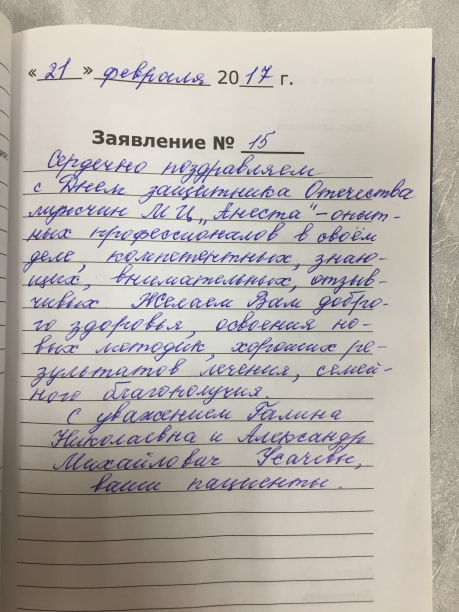 «21» февраля 2017 г.
Заявление № 15
Сердечно поздравляем
с Днем защитника Отечества
мужчин МЦ „Анеста"-опыт-
ных профессионалов в своём
деле, компетентных, знаю-
щих, внимательных, отзыв-
чивых Желаем Вам добро-
го здоровья, освоения но-
вых методик, хороших ре-
зультатов лечения, семей-
ного благополучия.
С уважением Галина
Николаевна и Александр
Михайлович Усачёвы,
ваши пациенты.